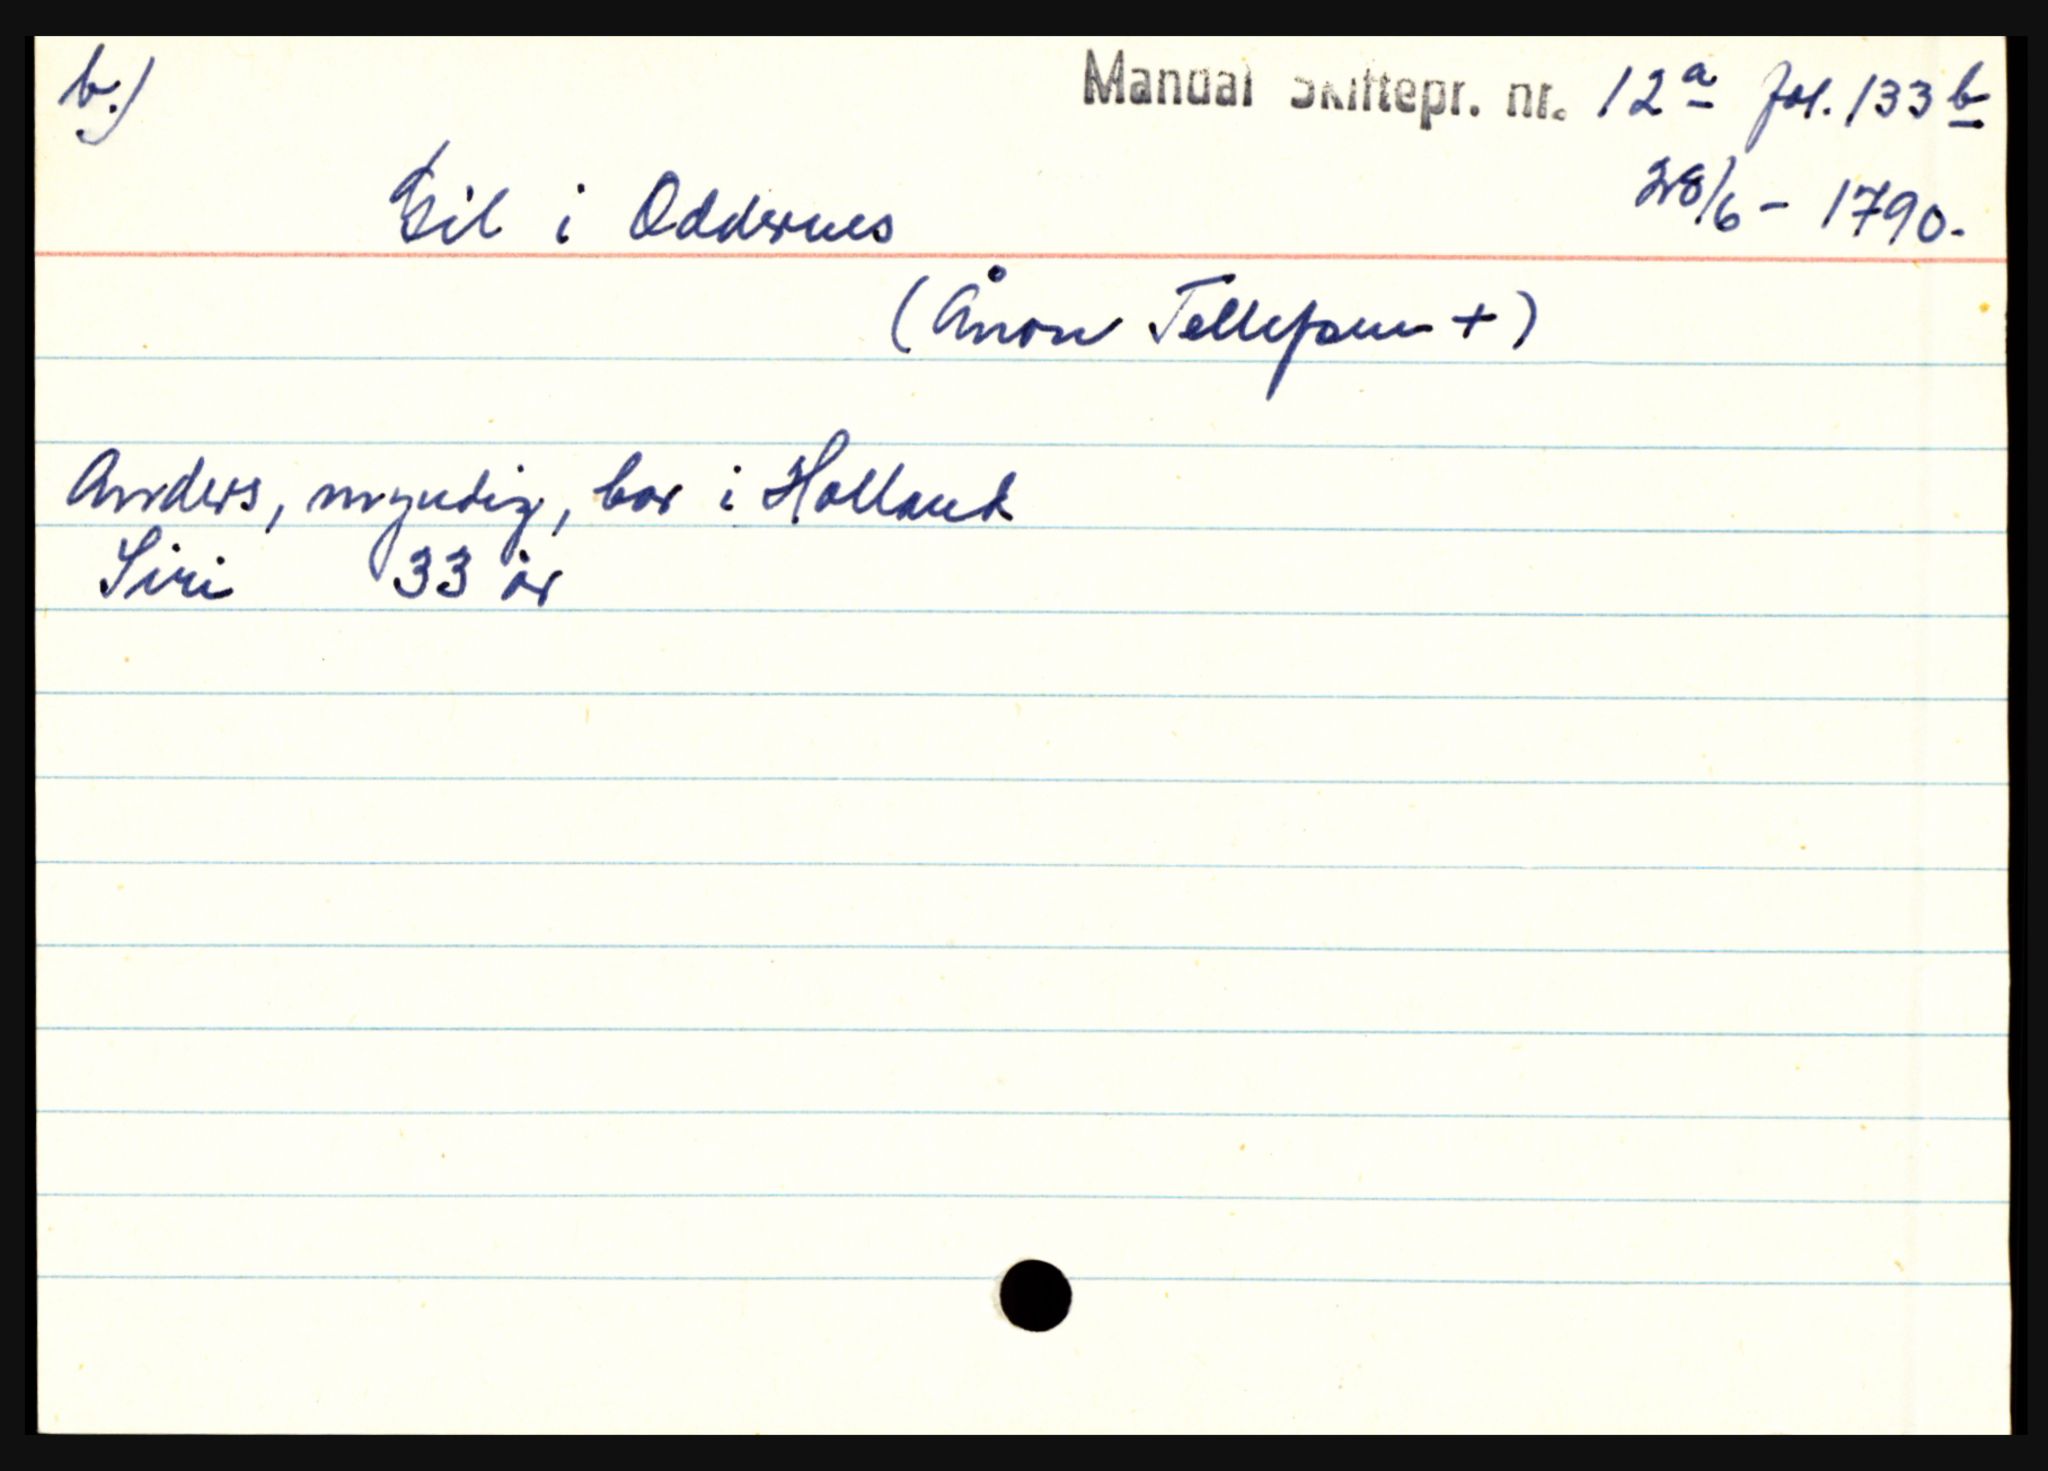 b.) Mandal Skiftepr. nr. 12a fol. 133b
28/6 - 1790.
Eil i Oddernes
(Ånon Tellefsen +)
Anders, myndig, bor i Holland
Siri 33 år